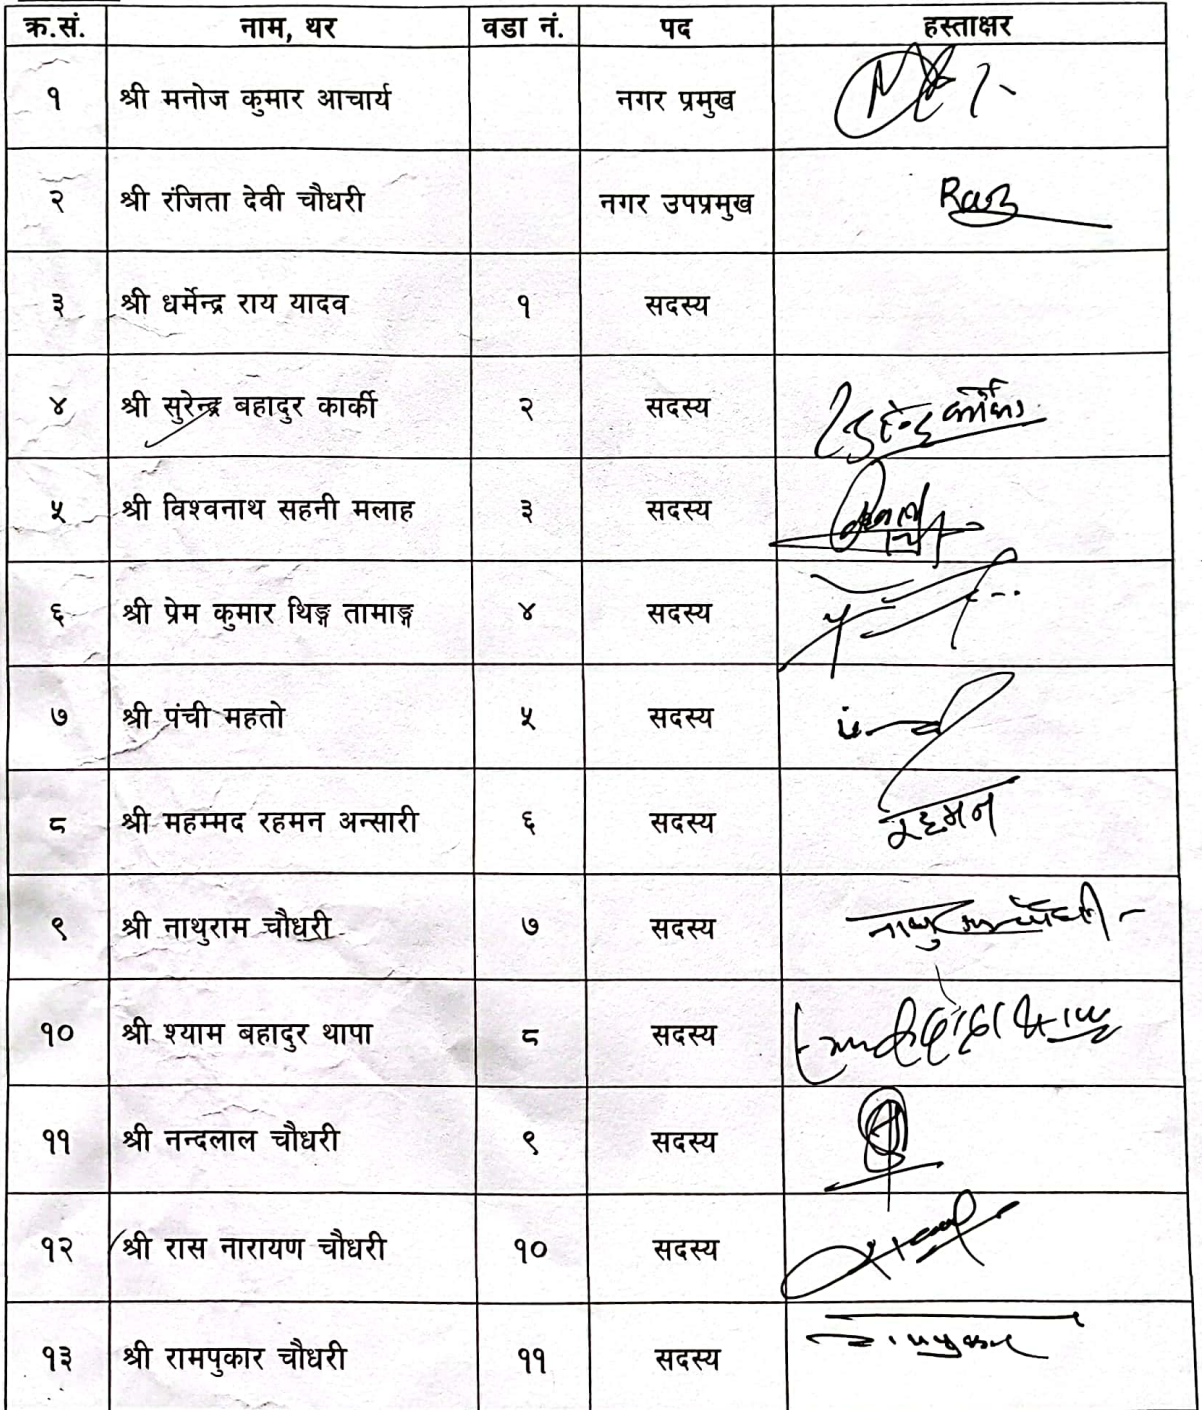 क्र.सं. नाम, थर वडा नं. पद हस्ताक्षर
१ श्री मनोज कुमार आचार्य नगर प्रमुख
२ श्री रंजिता देवी चौधरी नगर उपप्रमुख
३ श्री धर्मेन्द्र राय यादव १ सदस्य
४ श्री सुरेन्द्र बहादुर कार्की २ सदस्य
५ श्री विश्वनाथ सहनी मलाह ३ सदस्य
६ श्री प्रेम कुमार थिङ्ग तामाङ्ग ४ सदस्य
७ श्री पंची महतो ५ सदस्य
८ श्री महम्मद रहमन अन्सारी ६ सदस्य रहमन
९ श्री नाथुराम चौधरी ७ सदस्य
१० श्री श्याम बहादुर थापा ८ सदस्य
११ श्री नन्दलाल चौधरी ९ सदस्य
१२ श्री रास नारायण चौधरी १० सदस्य
१३ श्री रामपुकार चौधरी ११ सदस्य